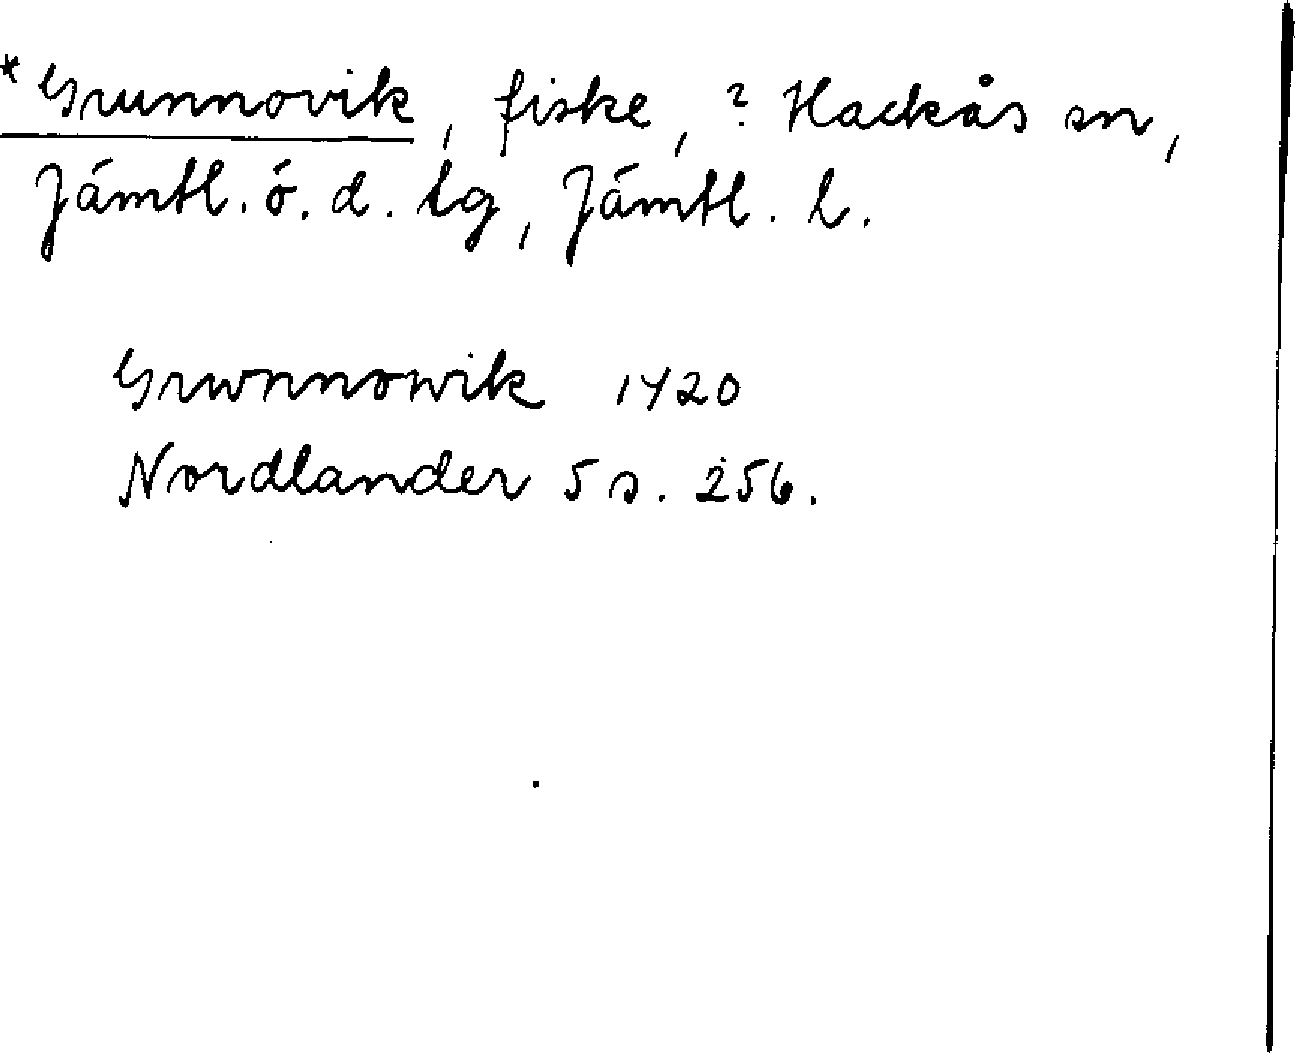 *Grunnovik, fiske, ? Hackås sn,
Jämtl. ö. d. tg, Jämtl. l.
Grwnnowik 1420
Nordlander 5 s. 256.